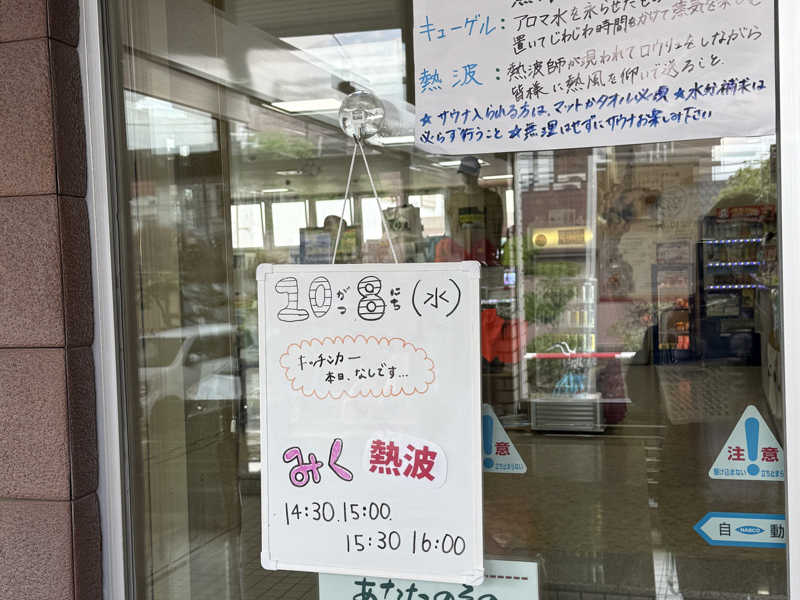 キューゲル：アロマ水を氷らせたもの
置いてじわじわ時間をかけて蒸気を楽しむ
熱波：熱波師が現われてロウリュをしながら
皆様に熱風を仰いで送ること.
★サウナ入られる方は、マットかタオル必須 ★水分補求は
必らず行うこと ★無理はせずにサウナお楽しみ下さい
10がつ8にち(水)
キッチンカー
本日、なしです…
みく 熱波
14:30.15:00.
15:30 16:00
注意
立ち止まらない
注意
駆け込まない 立ち止まらない
自 NABCO 動
あなたの